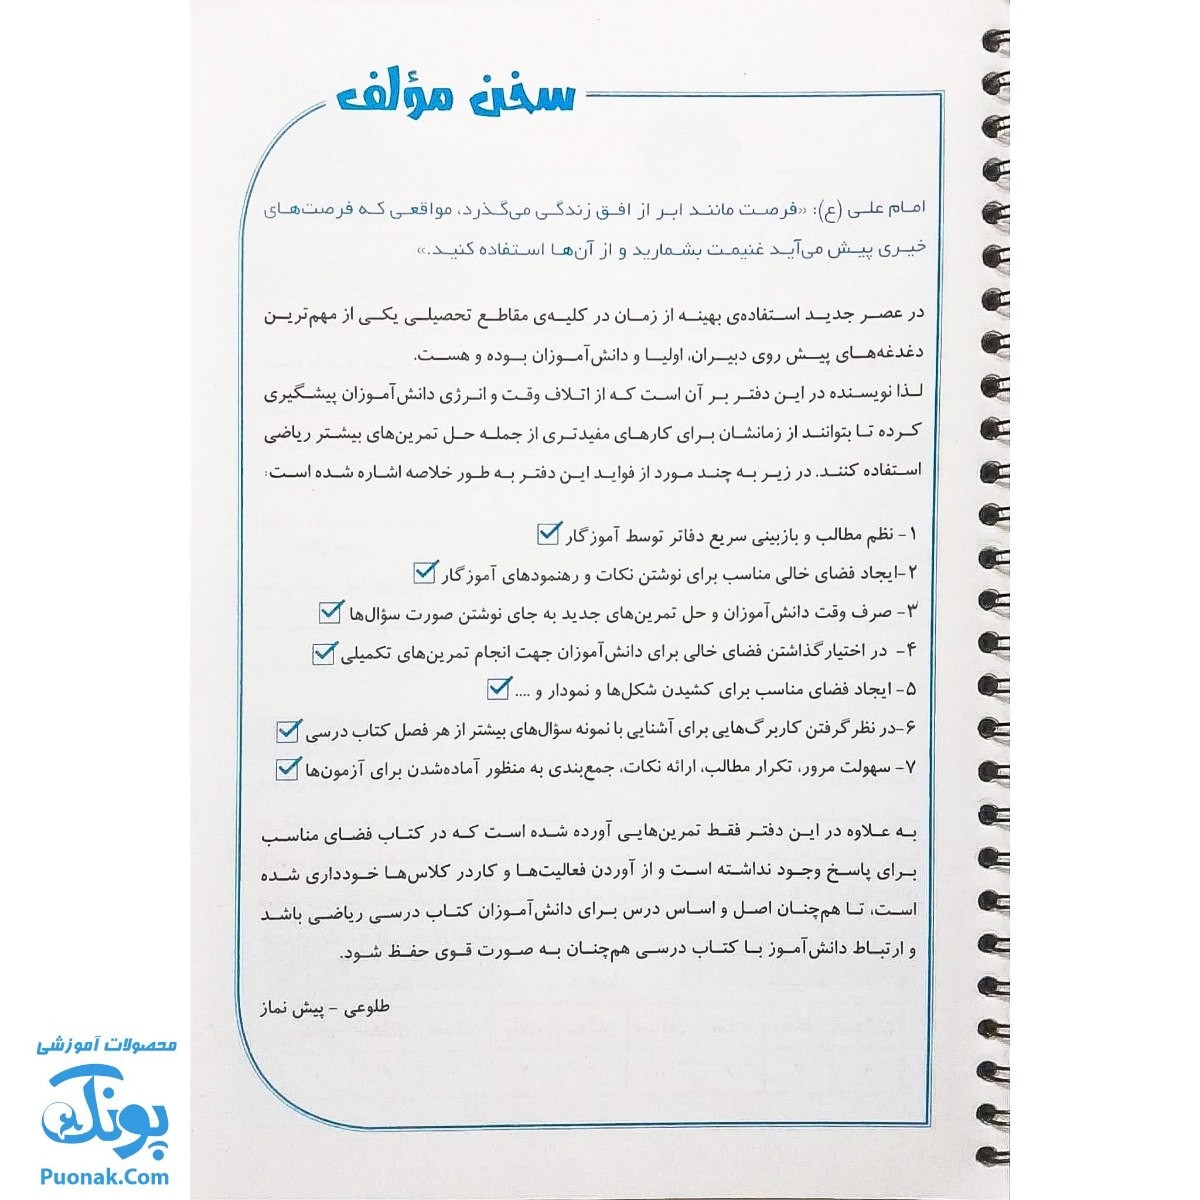 سخن مؤلف
امام علی (ع): «فرصت مانند ابر از افق زندگی می‌گذرد، مواقعی که فرصت‌های
خیری پیش می‌آید غنیمت بشمارید و از آن‌ها استفاده کنید.»
در عصر جدید استفاده‌ی بهینه از زمان در کلیه‌ی مقاطع تحصیلی یکی از مهم‌ترین
دغدغه‌های پیش روی دبیران، اولیا و دانش‌آموزان بوده و هست.
لذا نویسنده در این دفتر بر آن است که از اتلاف وقت و انرژی دانش‌آموزان پیشگیری
کرده تا بتوانند از زمانشان برای کارهای مفیدتری از جمله حل تمرین‌های بیشتر ریاضی
استفاده کنند. در زیر به چند مورد از فواید این دفتر به طور خلاصه اشاره شده است:
۱- نظم مطالب و بازبینی سریع دفاتر توسط آموزگار
۲-ایجاد فضای خالی مناسب برای نوشتن نکات و رهنمودهای آموزگار
۳- صرف وقت دانش‌آموزان و حل تمرین‌های جدید به جای نوشتن صورت سؤال‌ها
۴- در اختیار گذاشتن فضای خالی برای دانش‌آموزان جهت انجام تمرین‌های تکمیلی
۵- ایجاد فضای مناسب برای کشیدن شکل‌ها و نمودار و ....
۶-در نظر گرفتن کاربرگ‌هایی برای آشنایی با نمونه سؤال‌های بیشتر از هر فصل کتاب درسی
۷- سهولت مرور، تکرار مطالب، ارائه نکات، جمع‌بندی به منظور آماده‌شدن برای آزمون‌ها
به علاوه در این دفتر فقط تمرین‌هایی آورده شده است که در کتاب فضای مناسب
برای پاسخ وجود نداشته است و از آوردن فعالیت‌ها و کاردر کلاس‌ها خودداری شده
است، تا هم‌چنان اصل و اساس درس برای دانش‌آموزان کتاب درسی ریاضی باشد
و ارتباط دانش‌آموز با کتاب درسی هم‌چنان به صورت قوی حفظ شود.
طلوعی - پیش نماز
محصولات آموزشی
پونک
Puonak.Com